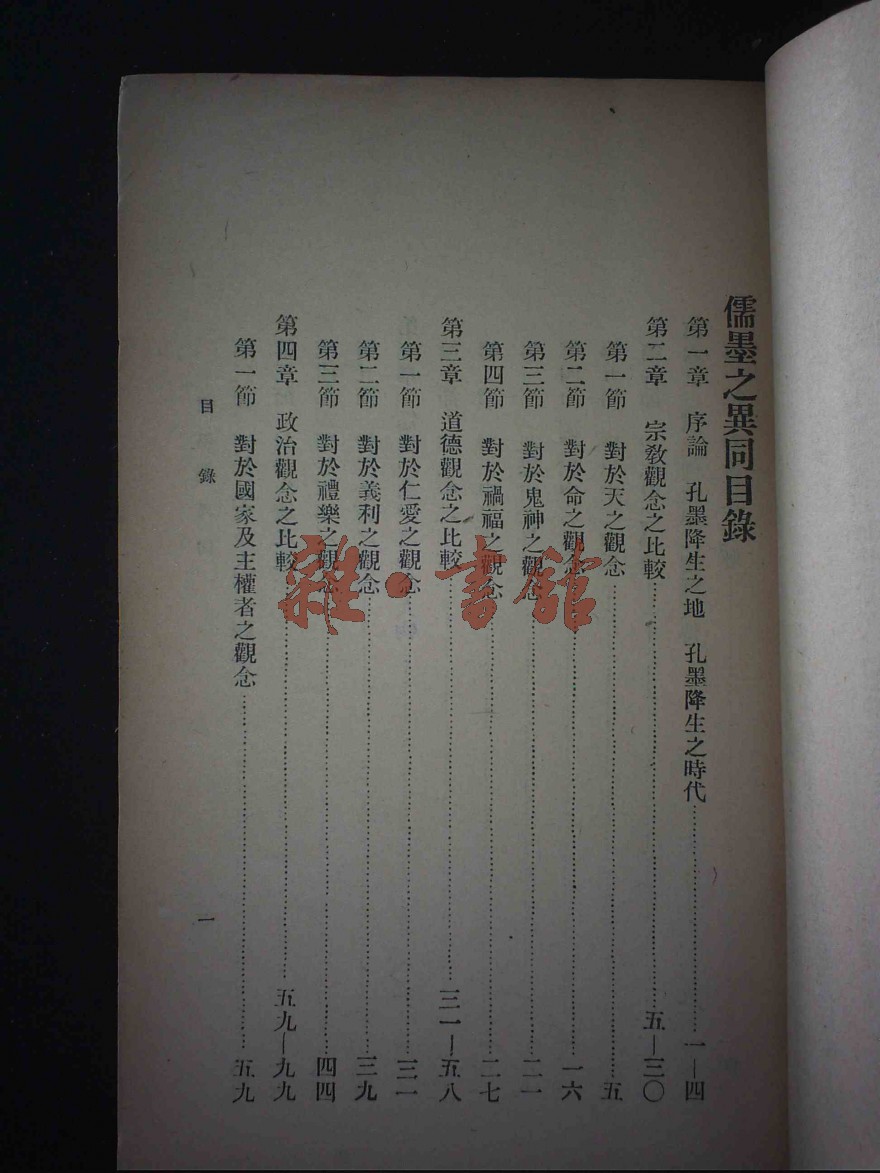 儒墨之異同目錄
第一章 序論 孔墨降生之地 孔墨降生之時代……一—四
第二章 宗教觀念之比較……五—三〇
第一節 對於天之觀念……五
第二節 對於命之觀念……一六
第三節 對於鬼神之觀念……二一
第四節 對於禍福之觀念……二七
第三章 道德觀念之比較……三一—五八
第一節 對於仁愛之觀念……三一
第二節 對於義利之觀念……三九
第三節 對於禮樂之觀念……四四
第四章 政治觀念之比較……五九—九九
第一節 對於國家及主權者之觀念……五九
目錄 一
雜·書館